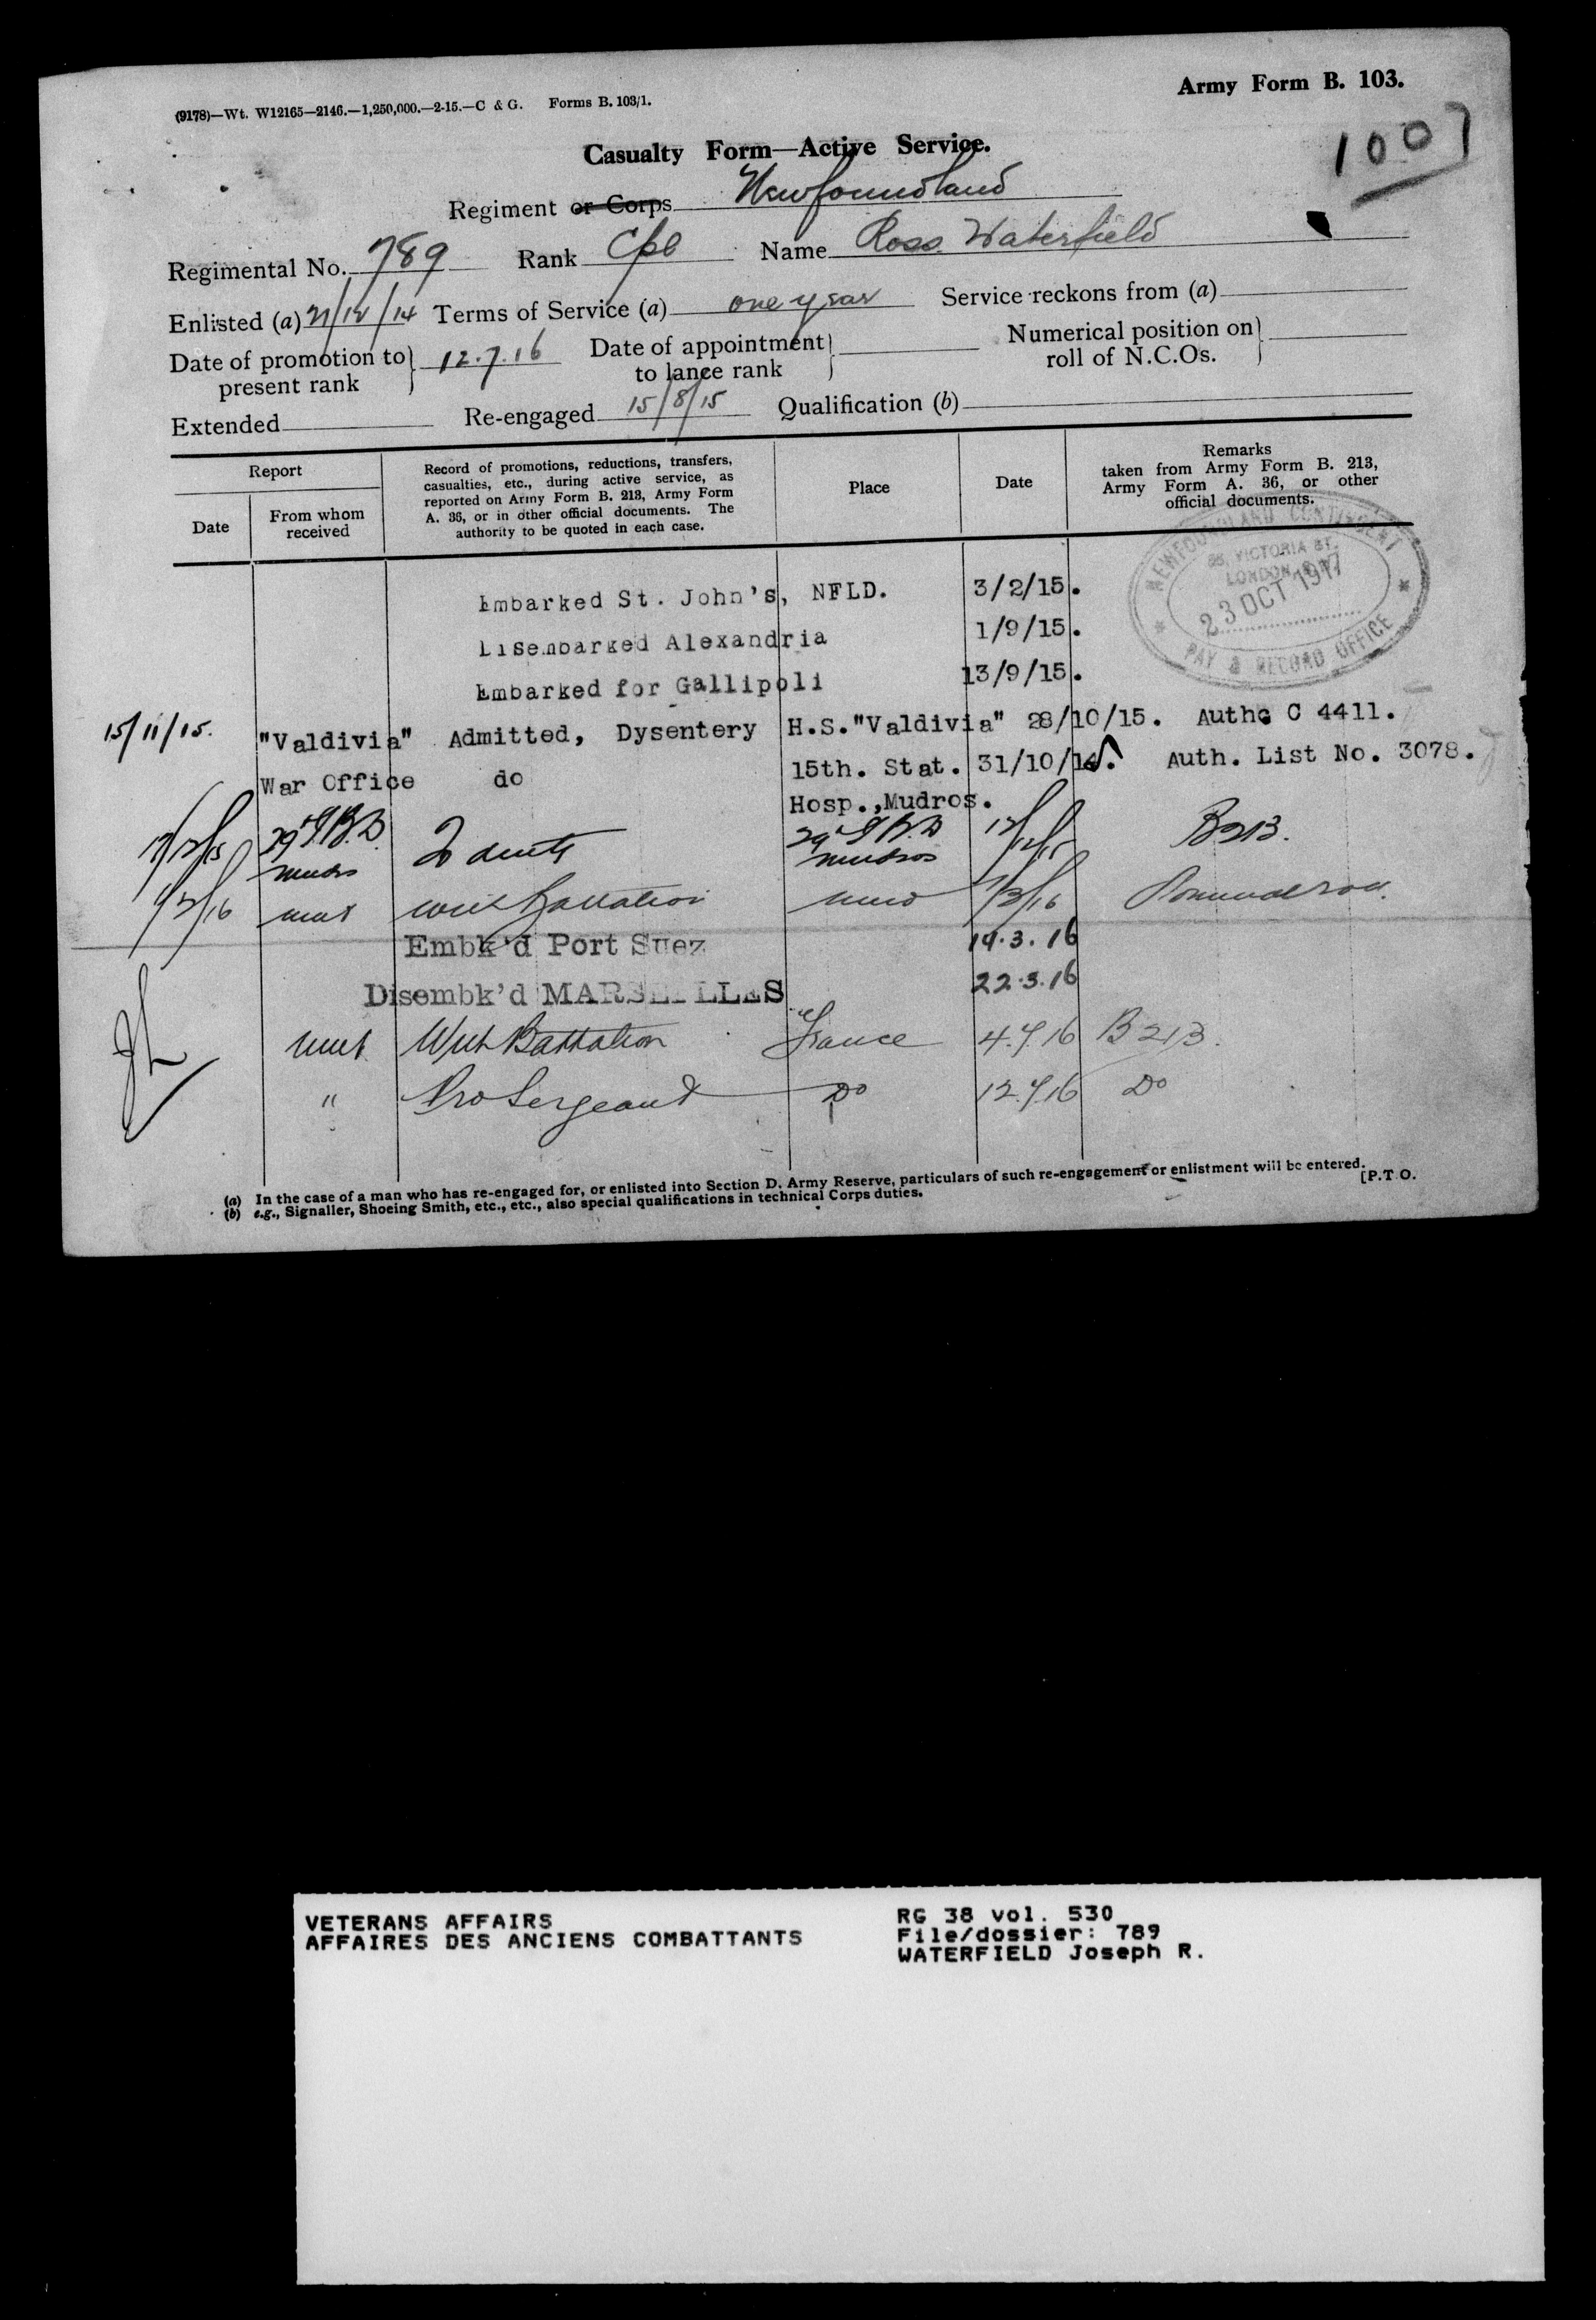 (9178)—Wt. W12165—2146.—1,250,000.—2-15.—C & G. Forms B. 103/1.
Army Form B. 103.
1007
Casualty Form—Active Service.
Regiment or Corps Newfoundland
Regimental No. 789 Rank Cpl Name Ross Waterfield
Enlisted (a) 21/12/14 Terms of Service (a) one year Service reckons from (a)
Date of promotion to present rank 12.7.16 Date of appointment to lance rank Numerical position on roll of N.C.Os.
Extended Re-engaged 15/8/15 Qualification (b)
Report
Date
From whom received
Record of promotions, reductions, transfers, casualties, etc., during active service, as reported on Army Form B. 213, Army Form A. 36, or in other official documents. The authority to be quoted in each case.
Place
Date
Remarks taken from Army Form B. 213, Army Form A. 36, or other official documents.
NEWFOUNDLAND CONTINGENT
VICTORIA ST.
LONDON
23 OCT 1917
PAY & RECORD OFFICE
Embarked St. John's, NFLD. 3/2/15.
Disembarked Alexandria 1/9/15.
Embarked for Gallipoli 13/9/15.
15/11/15. "Valdivia" Admitted, Dysentery H.S."Valdivia" 28/10/15. Authc C 4411.
War Office do 15th. Stat. 31/10/15. Auth. List No. 3078.
Hosp.,Mudros.
17/12/15 29th G.B.D. Mudros To duty 29th G.B.D Mudros 12/12/15 B213.
1/3/16 unit with Battalion 1/3/16
Embk'd Port Suez 14.3.16
Disembk'd MARSEILLES 22.3.16
Unit With Battalion France 4.7.16 B 213.
" Pro Sergeant Do 12.7.16 Do
(a) In the case of a man who has re-engaged for, or enlisted into Section D. Army Reserve, particulars of such re-engagement or enlistment will be entered.
(b) e.g., Signaller, Shoeing Smith, etc., etc., also special qualifications in technical Corps duties.
[P.T.O.
VETERANS AFFAIRS
AFFAIRES DES ANCIENS COMBATTANTS
RG 38 vol. 530
File/dossier: 789
WATERFIELD Joseph R.